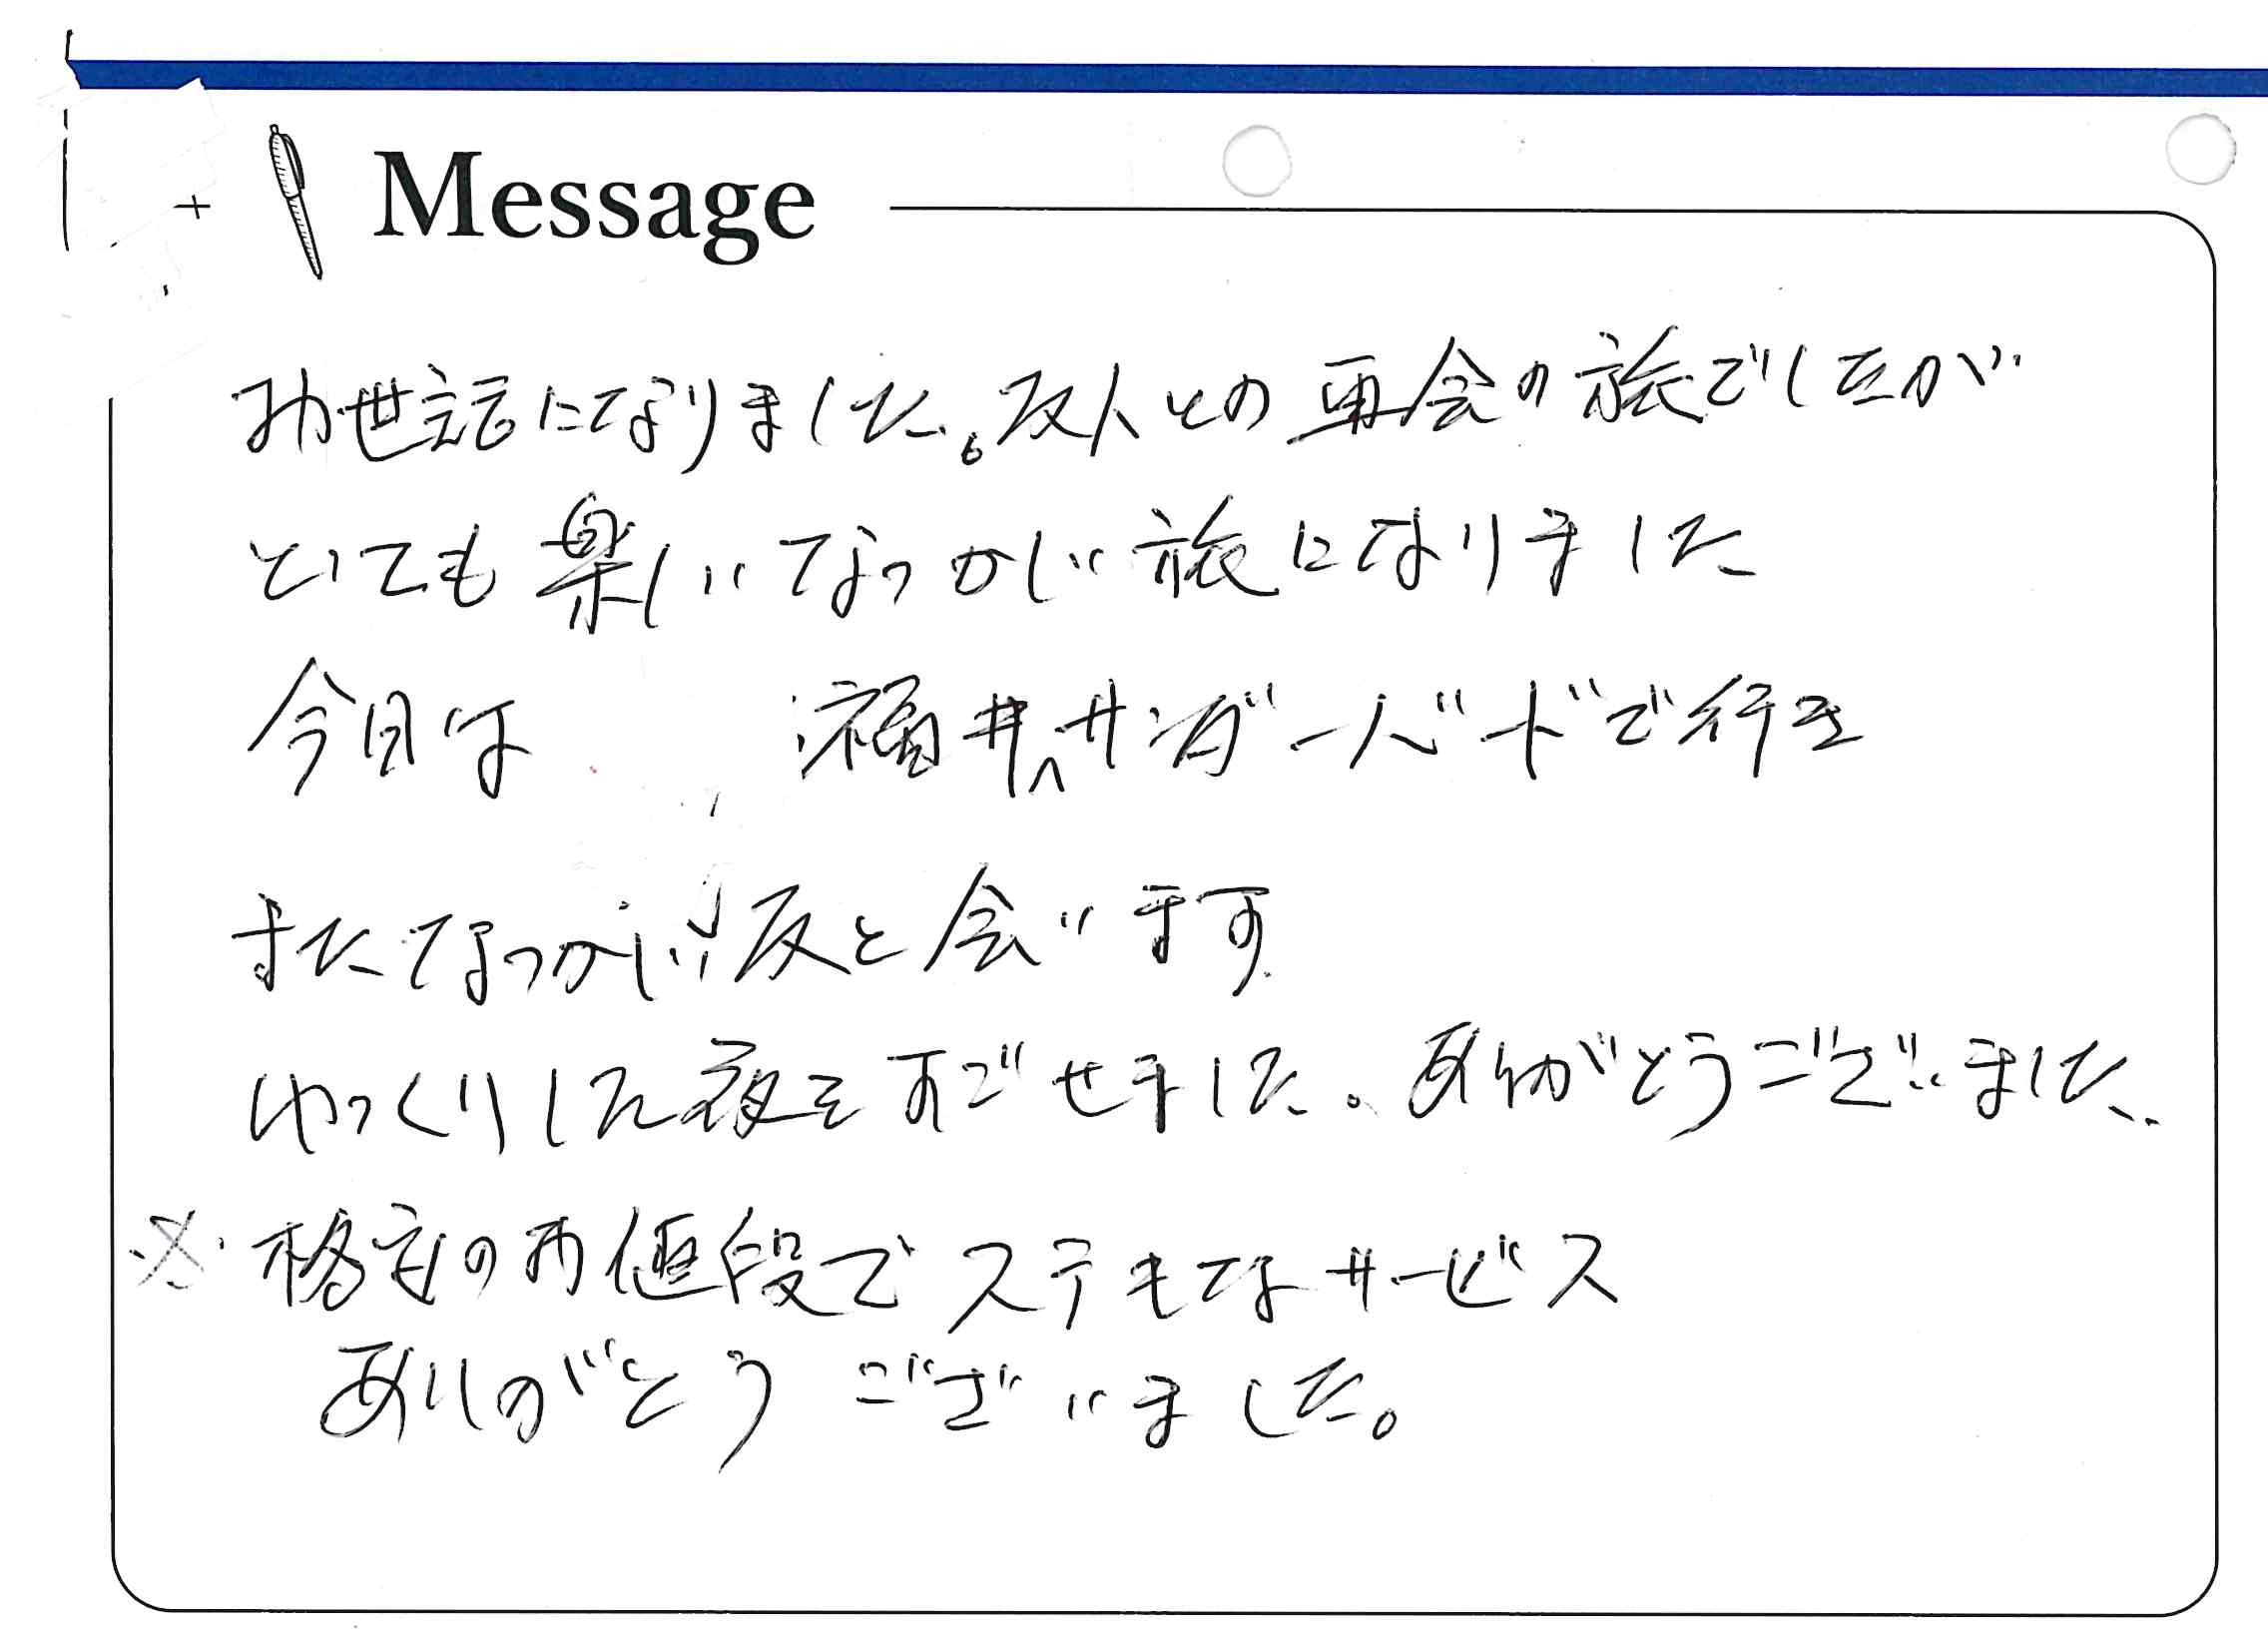 Message
お世話になりました。友人との再会の旅でしたが
とても楽しいなつかしい旅になりました
今日は 福井へサンダーバードで行き
またなつかしい友と会います
ゆっくりした夜をすごせました。ありがとうございました。
※格安のお値段でステキなサービス
ありがとうございました。